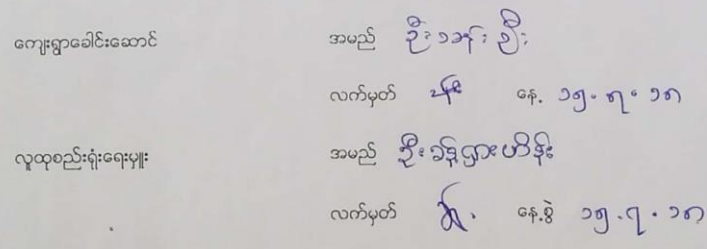 ကျေးရွာခေါင်းဆောင် အမည် ဦး ညီး
လက်မှတ် နေ့ ၁၅.၇.၁၈
လူထုစည်းရုံးရေးမှူး အမည် ဦး
လက်မှတ် နေ့စွဲ ၁၅.၇.၁၈